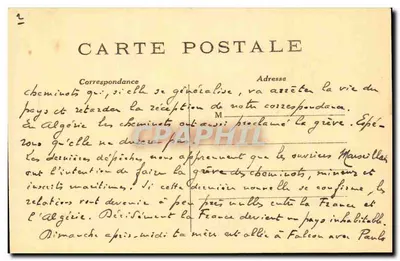 2
CARTE POSTALE
Correspondance Adresse
cheminots qui, si elle se généralise, va arrêter la vie du
pays et retarder la réception de notre correspondance.
M
En Algérie les cheminots ont aussi proclamé la grève. Espé-
CPHPHIL
rons qu'elle ne
Les dernières dépêches nous apprennent que les ouvriers Marseillais
ont l'intention de faire la grève des cheminots, mineurs et
inscrits maritimes. Si cette dernière nouvelle se confirme, les
relations vont devenir à peu près nulles entre la France et
l'Algérie. Décidément la France devient un pays inhabitable.
Dimanche après-midi ta mère est allée à Falcon avec Paule